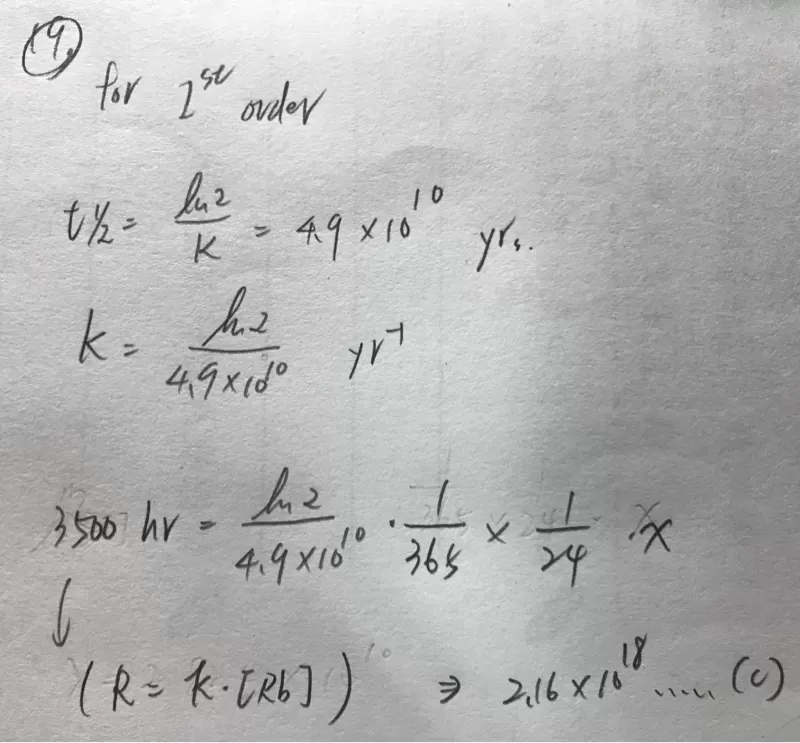 19.
for 1st order
t½ = ln2/K = 4.9 × 10^10 yrs.
k = ln2/4.9×10^10 yr^-1
3500 hr = ln2/4.9×10^10 · 1/365 × 1/24 · x
↓
(R = k·[Rb]) ⇒ 2.16 × 10^18 ..... (c)